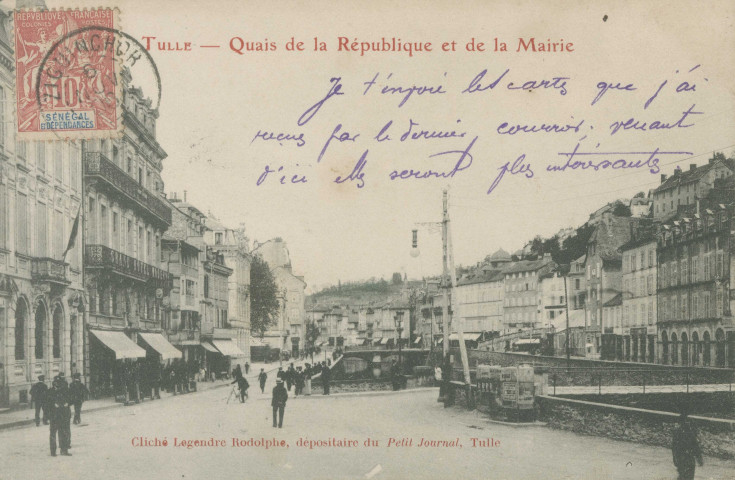 RÉPUBLIQUE FRANÇAISE
COLONIES POSTES
10
SÉNÉGAL
ET DÉPENDANCES
ZIGUINCHOR
TULLE — Quais de la République et de la Mairie
Je t'envoie les cartes que j'ai
reçues par le dernier courrier. venant
d'ici elles seront plus intéressantes
Cliché Legendre Rodolphe, dépositaire du Petit Journal, Tulle